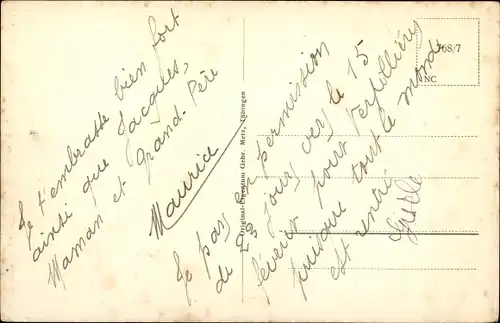 Je t'embrasse bien fort
ainsi que Jacques,
Maman et Grand-Père
Maurice
Je pars en permission
de 23 jours vers le 15
février pour
puisque tout le monde
est rentré
Original-Eigentum Gebr. Metz, Tübingen
768/7
NC